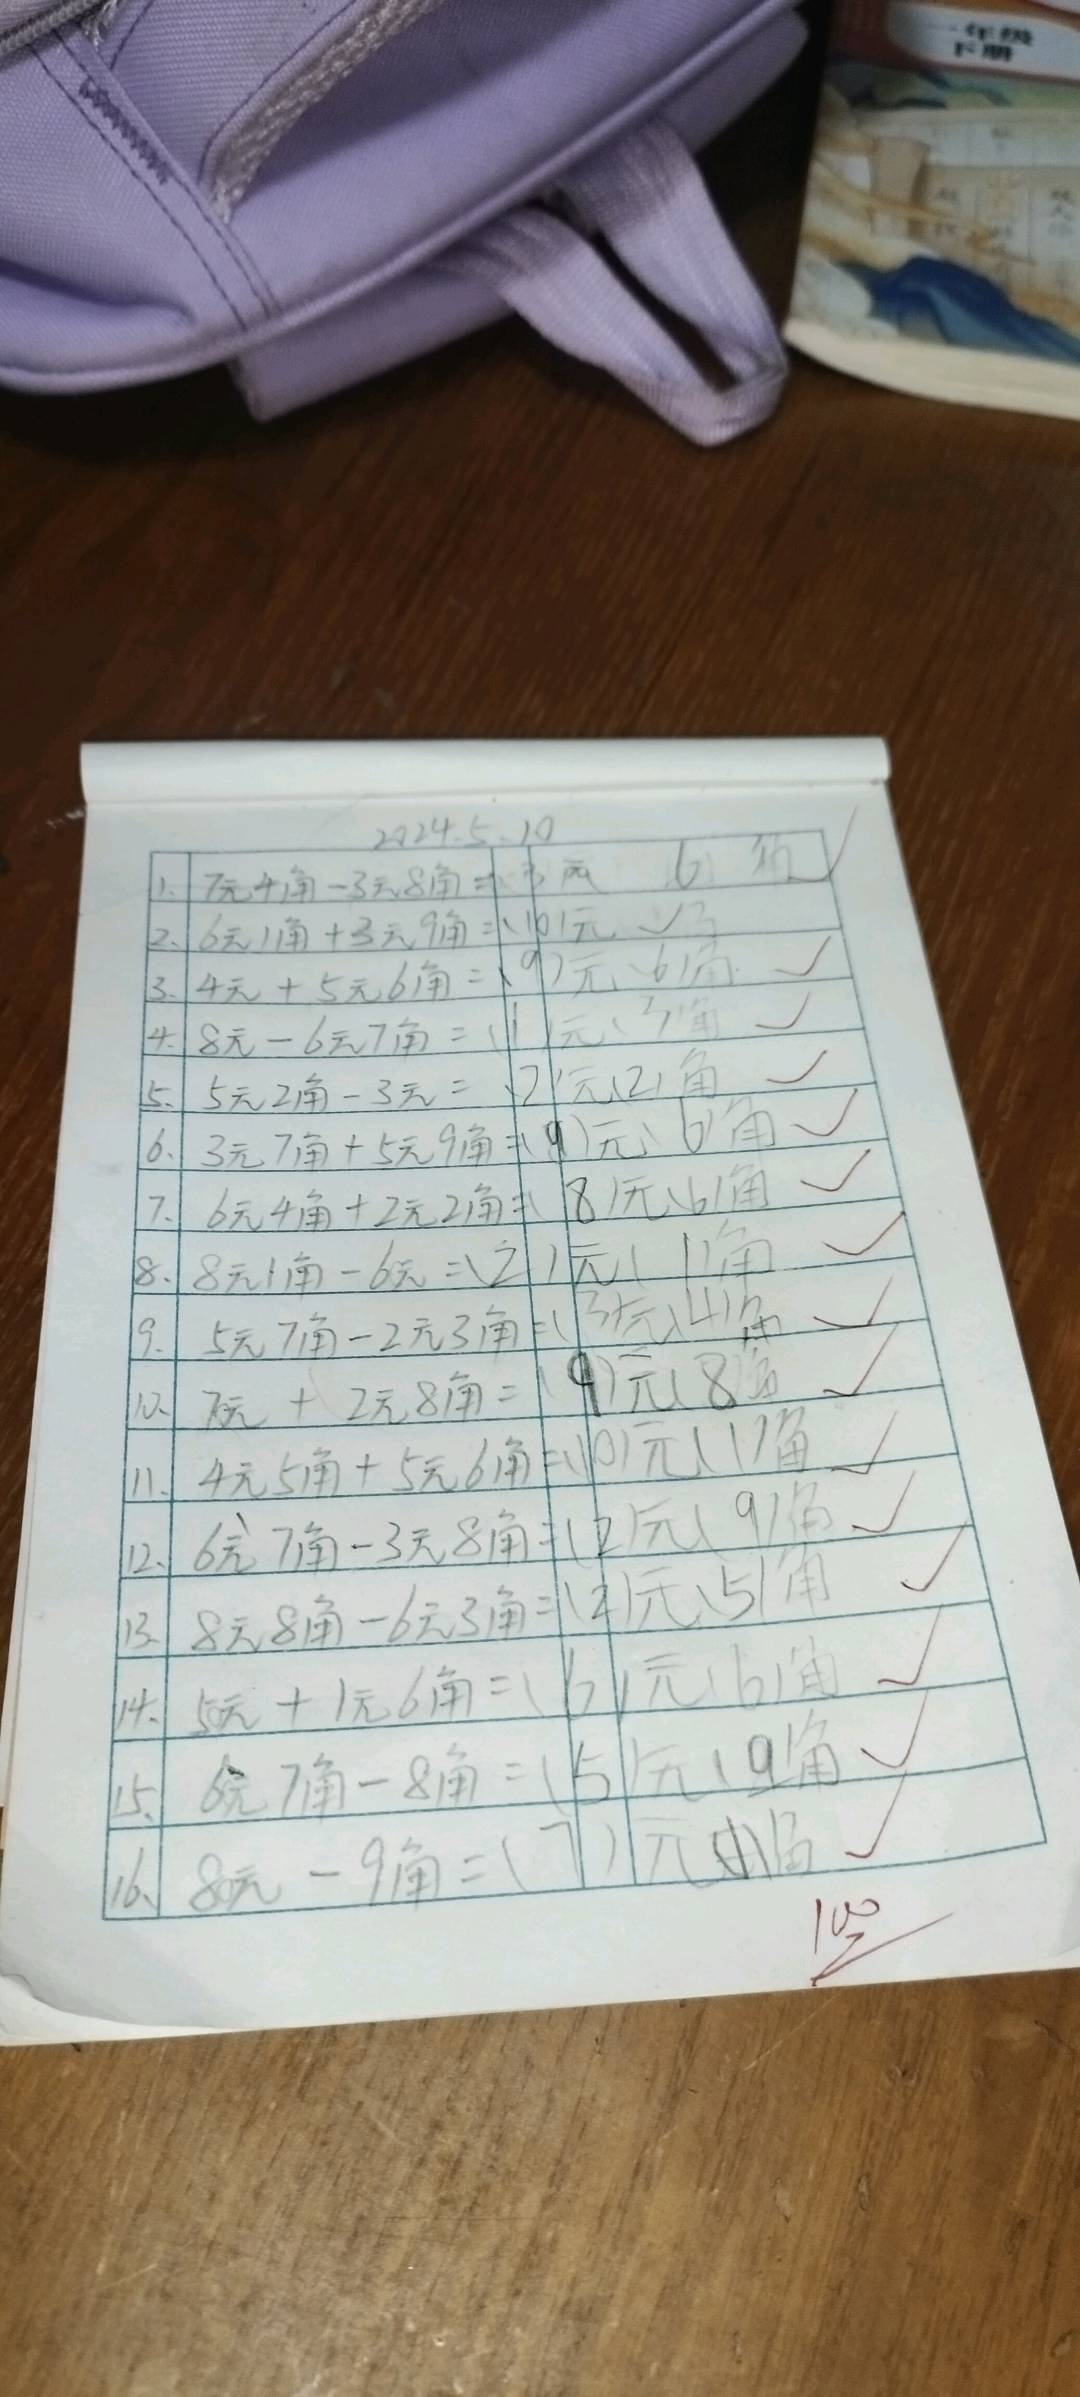 一年级
下册
2024.5.10
1. 7元4角-3元8角=(3元 6角
2. 6元1角+3元9角=(10)元
3. 4元+5元6角=(9)元(6)角
4. 8元-6元7角=(1)元(3)角
5. 5元2角-3元=(2)元(2)角
6. 3元7角+5元9角=(9)元(6)角
7. 6元4角+2元2角=(8)元(6)角
8. 8元1角-6元=(2)元(1)角
9. 5元7角-2元3角=(3)元(4)角
10. 7元+2元8角=(9)元(8角
11. 4元5角+5元6角=(10)元(1)角
12. 6元7角-3元8角=(2)元(9)角
13. 8元8角-6元3角=(2)元(5)角
14. 5元+1元6角=(6)元(6)角
15. 6元7角-8角=(5)元(9)角
16. 8元-9角=(7)元(1)角
100